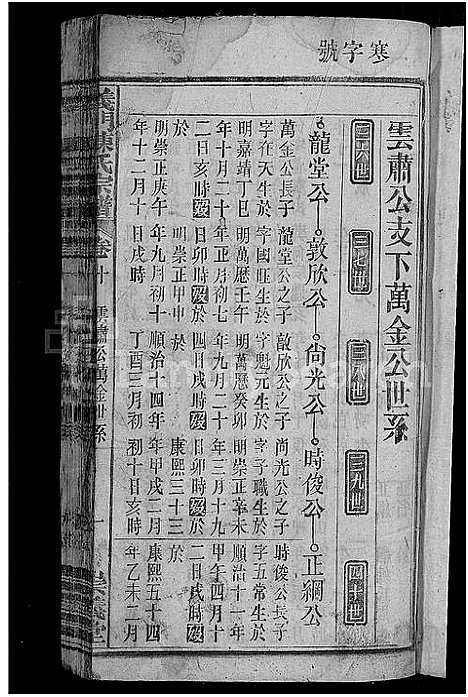 寒字號
雲肅公支下萬金公世系
三六世 三七世 三八世 三九世 四十世
龍堂公 敦欣公 尚光公 時俊公 正綱公
萬金公長子 龍堂公之子 敦欣公之子 尚光公之子 時俊公長子
字在天生於 字國旺生於 字魁元生於 字子職生於 字五常生於
明嘉靖丁巳 明萬曆壬午 明萬曆癸卯 明崇正辛未 順治十一年
年十月二十 年九月初七 年九月二十 年三月十九 甲午四月十
二日亥時歿 日卯時歿於 四日戌時歿 日卯時歿於 二日戌時歿
於 明崇正甲申 於 康熙三十三 於
明崇正庚午 年九月初十 順治十四年 年甲戌二月 康熙五十四
年十二月十 日戌時 丁酉三月初 初十日亥時 年乙未二月
義門陳氏宗譜 卷十 雲肅公萬金世系 一 義堂